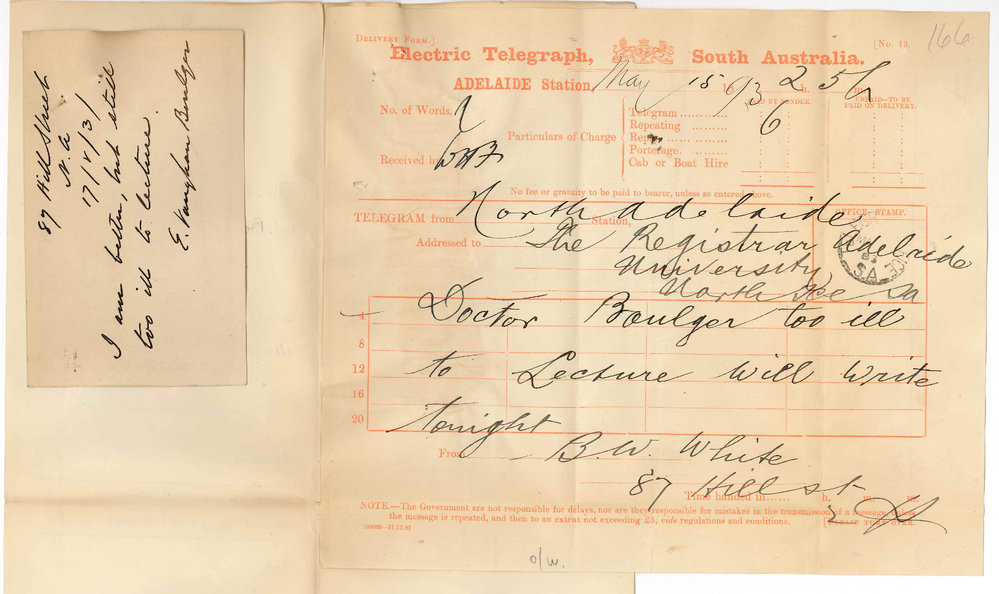 87 Hill Street
N. A.
17/5/93
I am better, but still
too ill to lecture.
E. Vaughan Boulger
166
DELIVERY FORM.]
[No. 13.
Electric Telegraph, South Australia.
ADELAIDE Station, May 15 1893 2h. 5
No. of Words,
Received by
Particulars of Charge
Telegram
Repeating
Reply
Porterage
Cab or Boat Hire
PAID BY SENDER.
6
UNPAID—TO BE
PAID ON DELIVERY.
No fee or gratuity to be paid to bearer, unless so entered above.
TELEGRAM from North Adelaide Station,
OFFICE-STAMP.
S.A.
Addressed to The Registrar Adelaide
University
North Tce
4
Doctor Boulger too ill
8
12
to Lecture will write
16
20
tonight
From B. W. White
87 Hill St
Time handed in h. m. m.
NOTE.—The Government are not responsible for delays, nor are they responsible for mistakes in the transmission of a message, unless
the message is repeated, and then to an extent not exceeding £5, vide regulations and conditions.
[PLEASE TURN OVER.
100005—21.11.92
o/w.